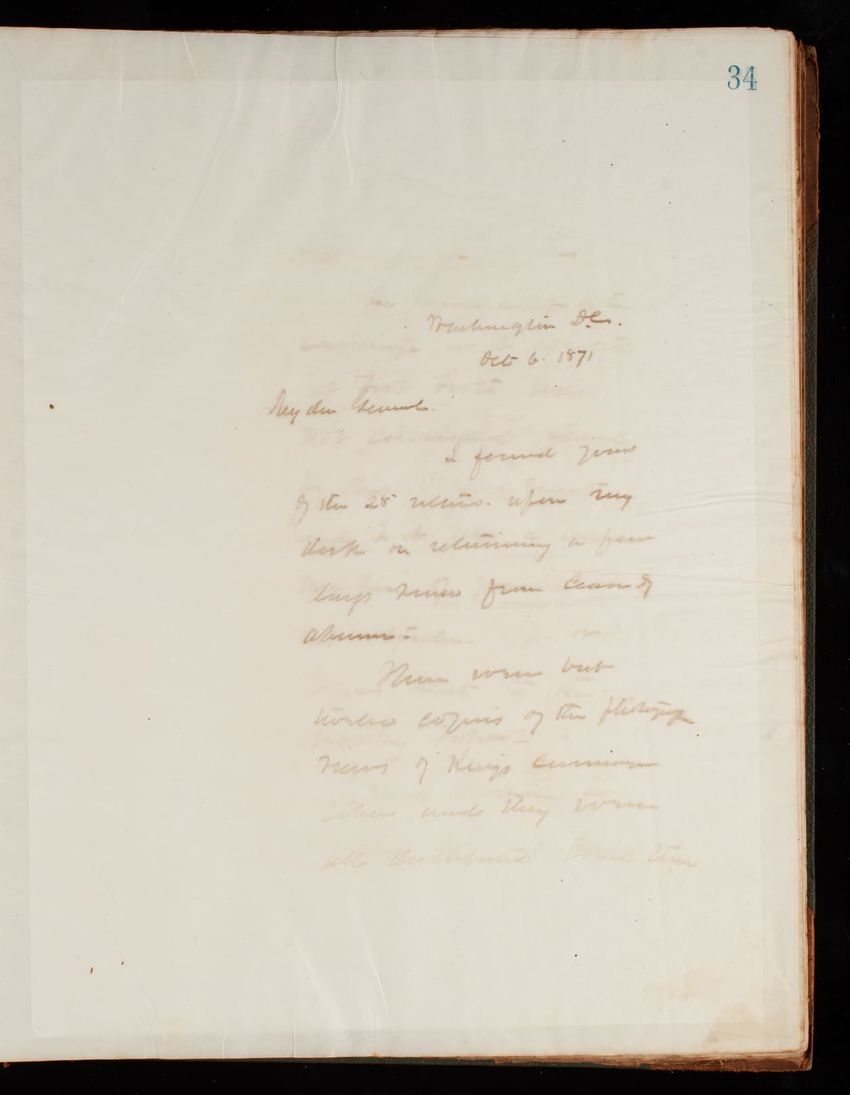 34
Washington D.C.
Oct 6. 1871
My dear General.
I found yours
of the 28 ultimo. upon my
desk on returning a few
days since from leave of
absence.
There were but
twelve copies of the photograph
views of Kings
made they were
all distributed some time